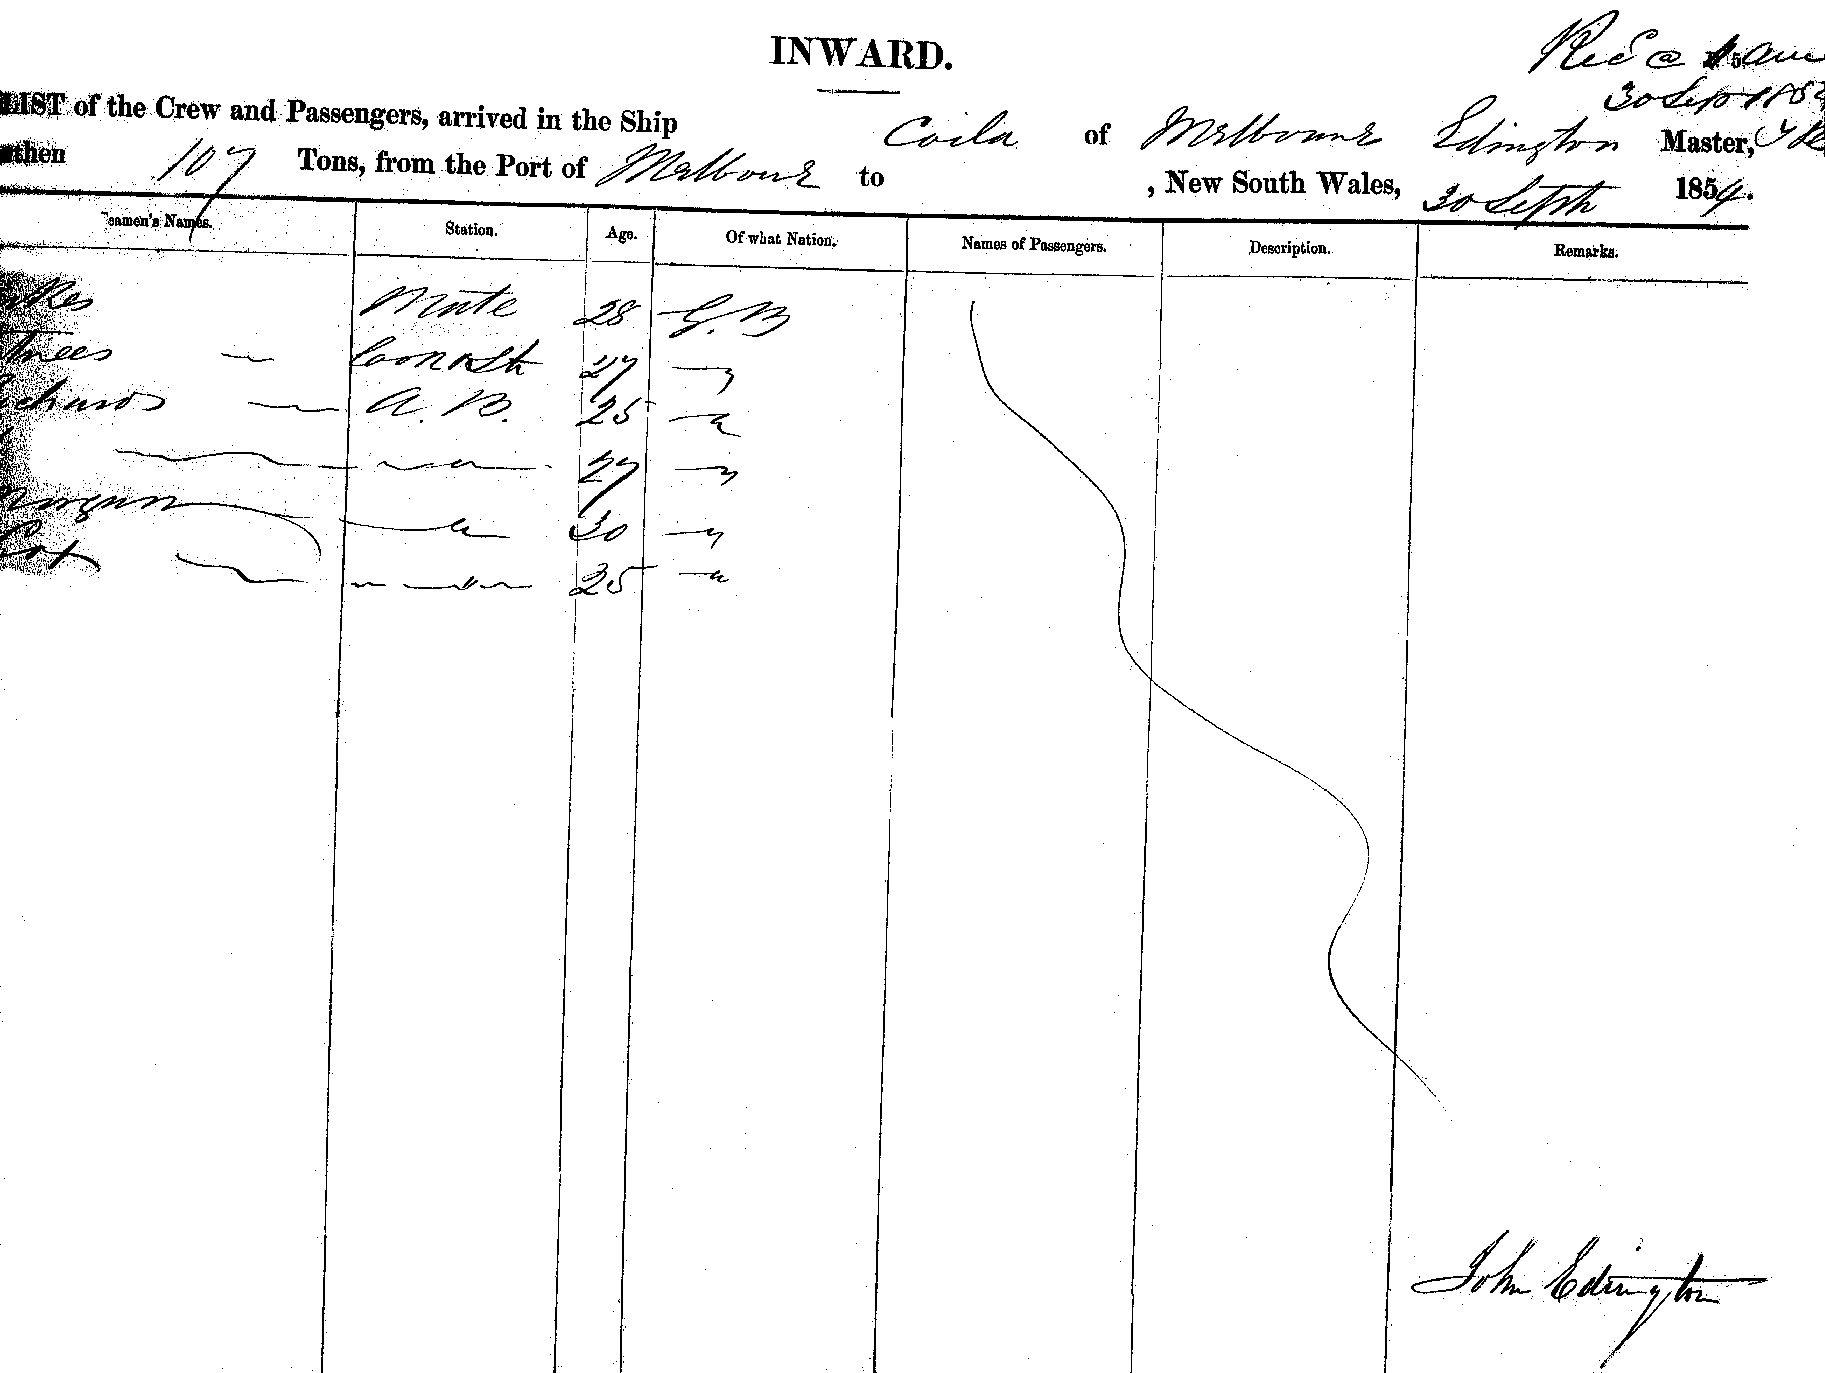 INWARD.
Rec @ am
30 Sep 185
LIST of the Crew and Passengers, arrived in the Ship Coila of Melbourne Edington Master,
then 107 Tons, from the Port of Melbourne to , New South Wales, 30 Septr 1854.
Seamen's Names. Station. Age. Of what Nation. Names of Passengers. Description. Remarks.
Mate 28 G. B
Cook & St 27 "
A. B. 25 "
" 27 "
Morgan " 30 "
Cox " 25 "
John Edington